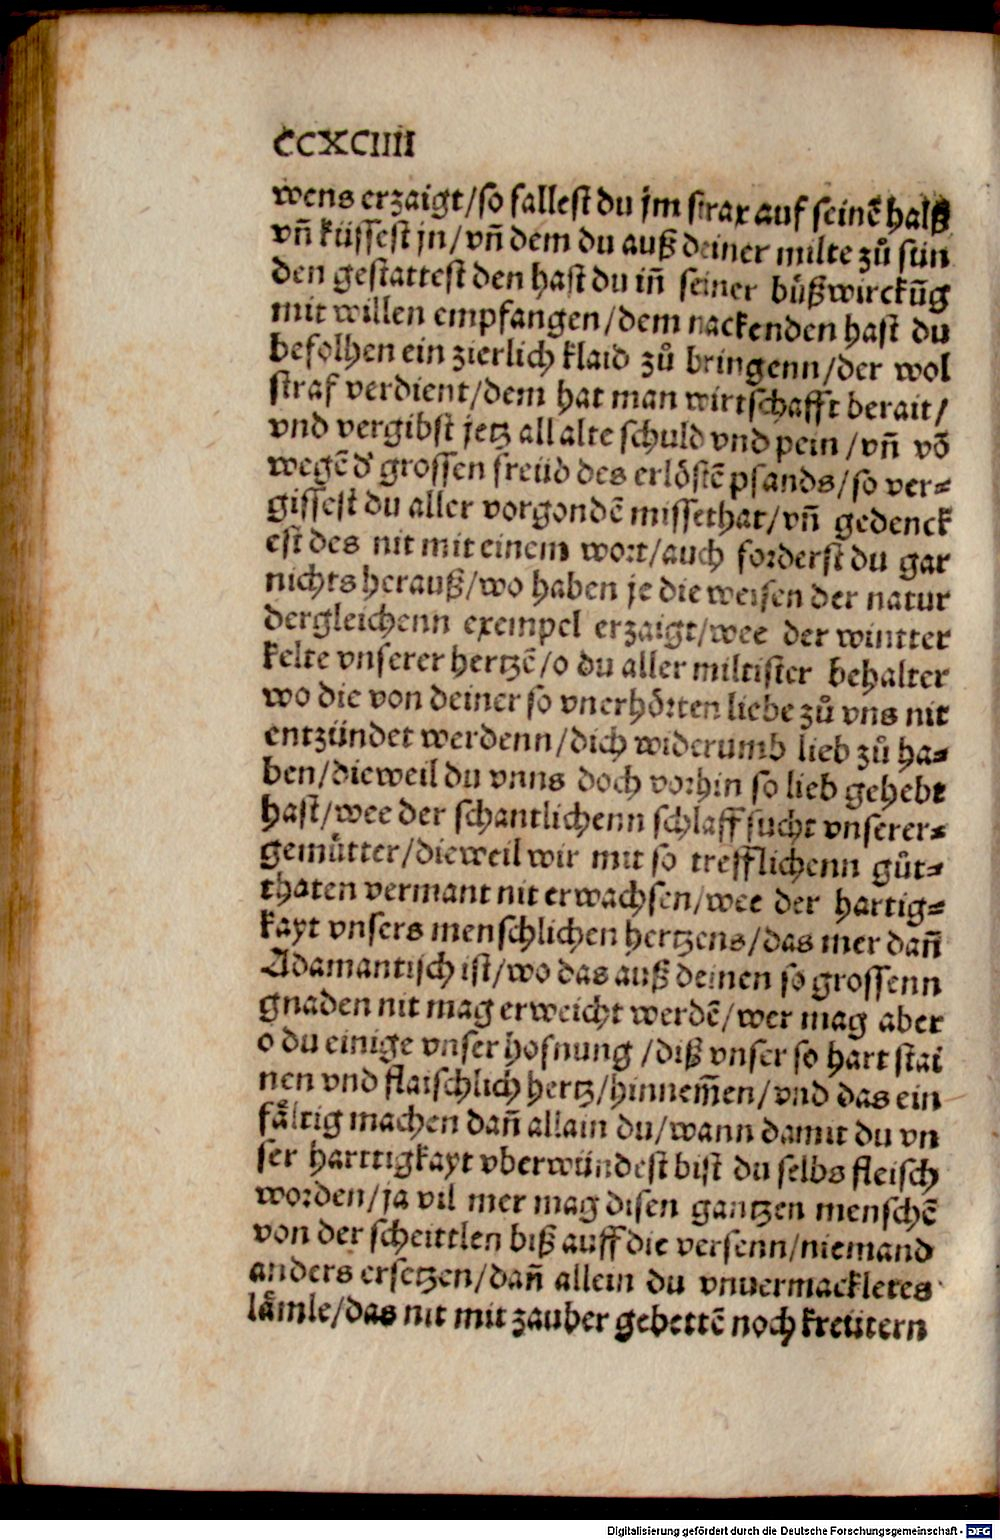 CCXCIIII
wens erzaigt/so fallest du jm strax auf seinē halß
vn̄ küssest jn/vn̄ dem du auß deiner milte zů sün
den gestattest den hast du in̄ seiner bůßwirckūg
mit willen empfangen/dem nackenden hast du
befolhen ein zierlich klaid zů bringenn/der wol
straf verdient/dem hat man wirtschafft berait/
vnd vergibst jetz all alte schuld vnd pein/vn̄ vō
wegē d' grossen freüd des erlößtē pfands/so ver⸗
gissest du aller vorgondē missethat/vn̄ gedenck
est des nit mit einem wort/auch forderst du gar
nichts herauß/wo haben je die weisen der natur
dergleichenn exempel erzaigt/wee der wintter
kelte vnserer hertzē/o du aller miltister behalter
wo die von deiner so vnerhörten liebe zů vns nit
entzündet werdenn/dich widerumb lieb zů ha⸗
ben/dieweil du vnns doch vorhin so lieb gehebt
hast/wee der schantlichenn schlaffsucht vnserer⸗
gemütter/dieweil wir mit so trefflichenn gůt⸗
thaten vermant nit erwachsen/wee der hartig⸗
kayt vnsers menschlichen hertzens/das mer dan̄
Adamantisch ist/wo das auß deinen so grossenn
gnaden nit mag erweicht werdē/wer mag aber
o du einige vnser hofnung/diß vnser so hart stai
nen vnd flaischlich hertz/hinnem̄en/vnd das ein
fåltig machen dan̄ allain du/wann damit du vn
ser harttigkayt vberwündest bist du selbs fleisch
worden/ja vil mer mag disen gantzen menschē
von der scheittlen biß auff die versenn/niemand
anders ersetzen/dan̄ allein du vnuermackletes
låmle/das nit mit zauber gebettē noch kreütern
Digitalisierung gefördert durch die Deutsche Forschungsgemeinschaft - DFG